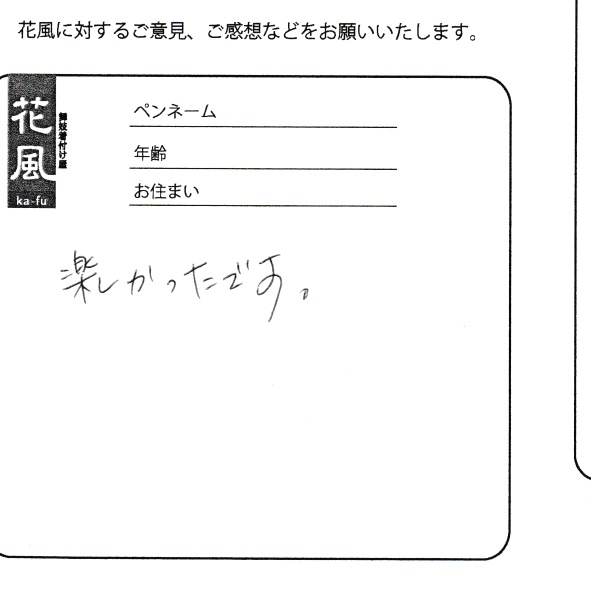 花風に対するご意見、ご感想などをお願いいたします。
花風
舞妓着付け屋
ka-fu
ペンネーム
年齢
お住まい
楽しかったです。